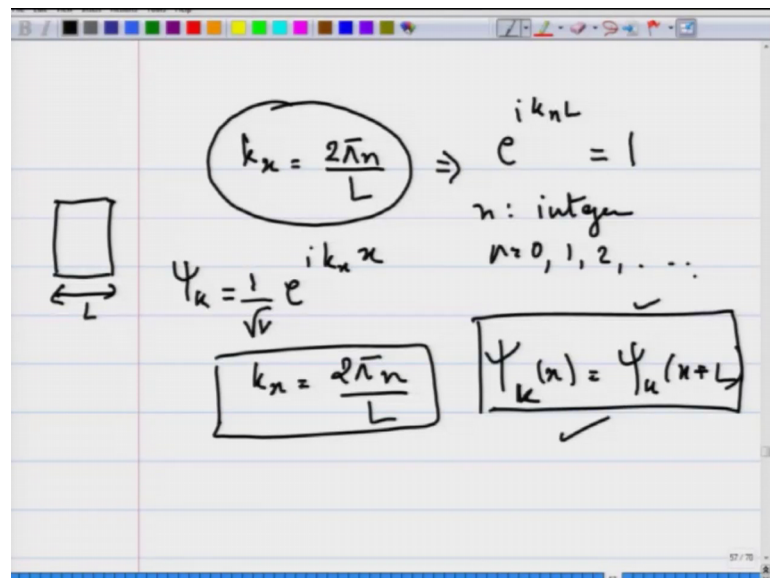 k_x = 2πn/L ⇒ e^{i k_x L} = 1
n : integer
n = 0, 1, 2, . . . .
L
Ψ_k = 1/√V e^{i k_x x}
k_x = 2πn/L
Ψ_k(x) = Ψ_k(x + L)
57 / 70